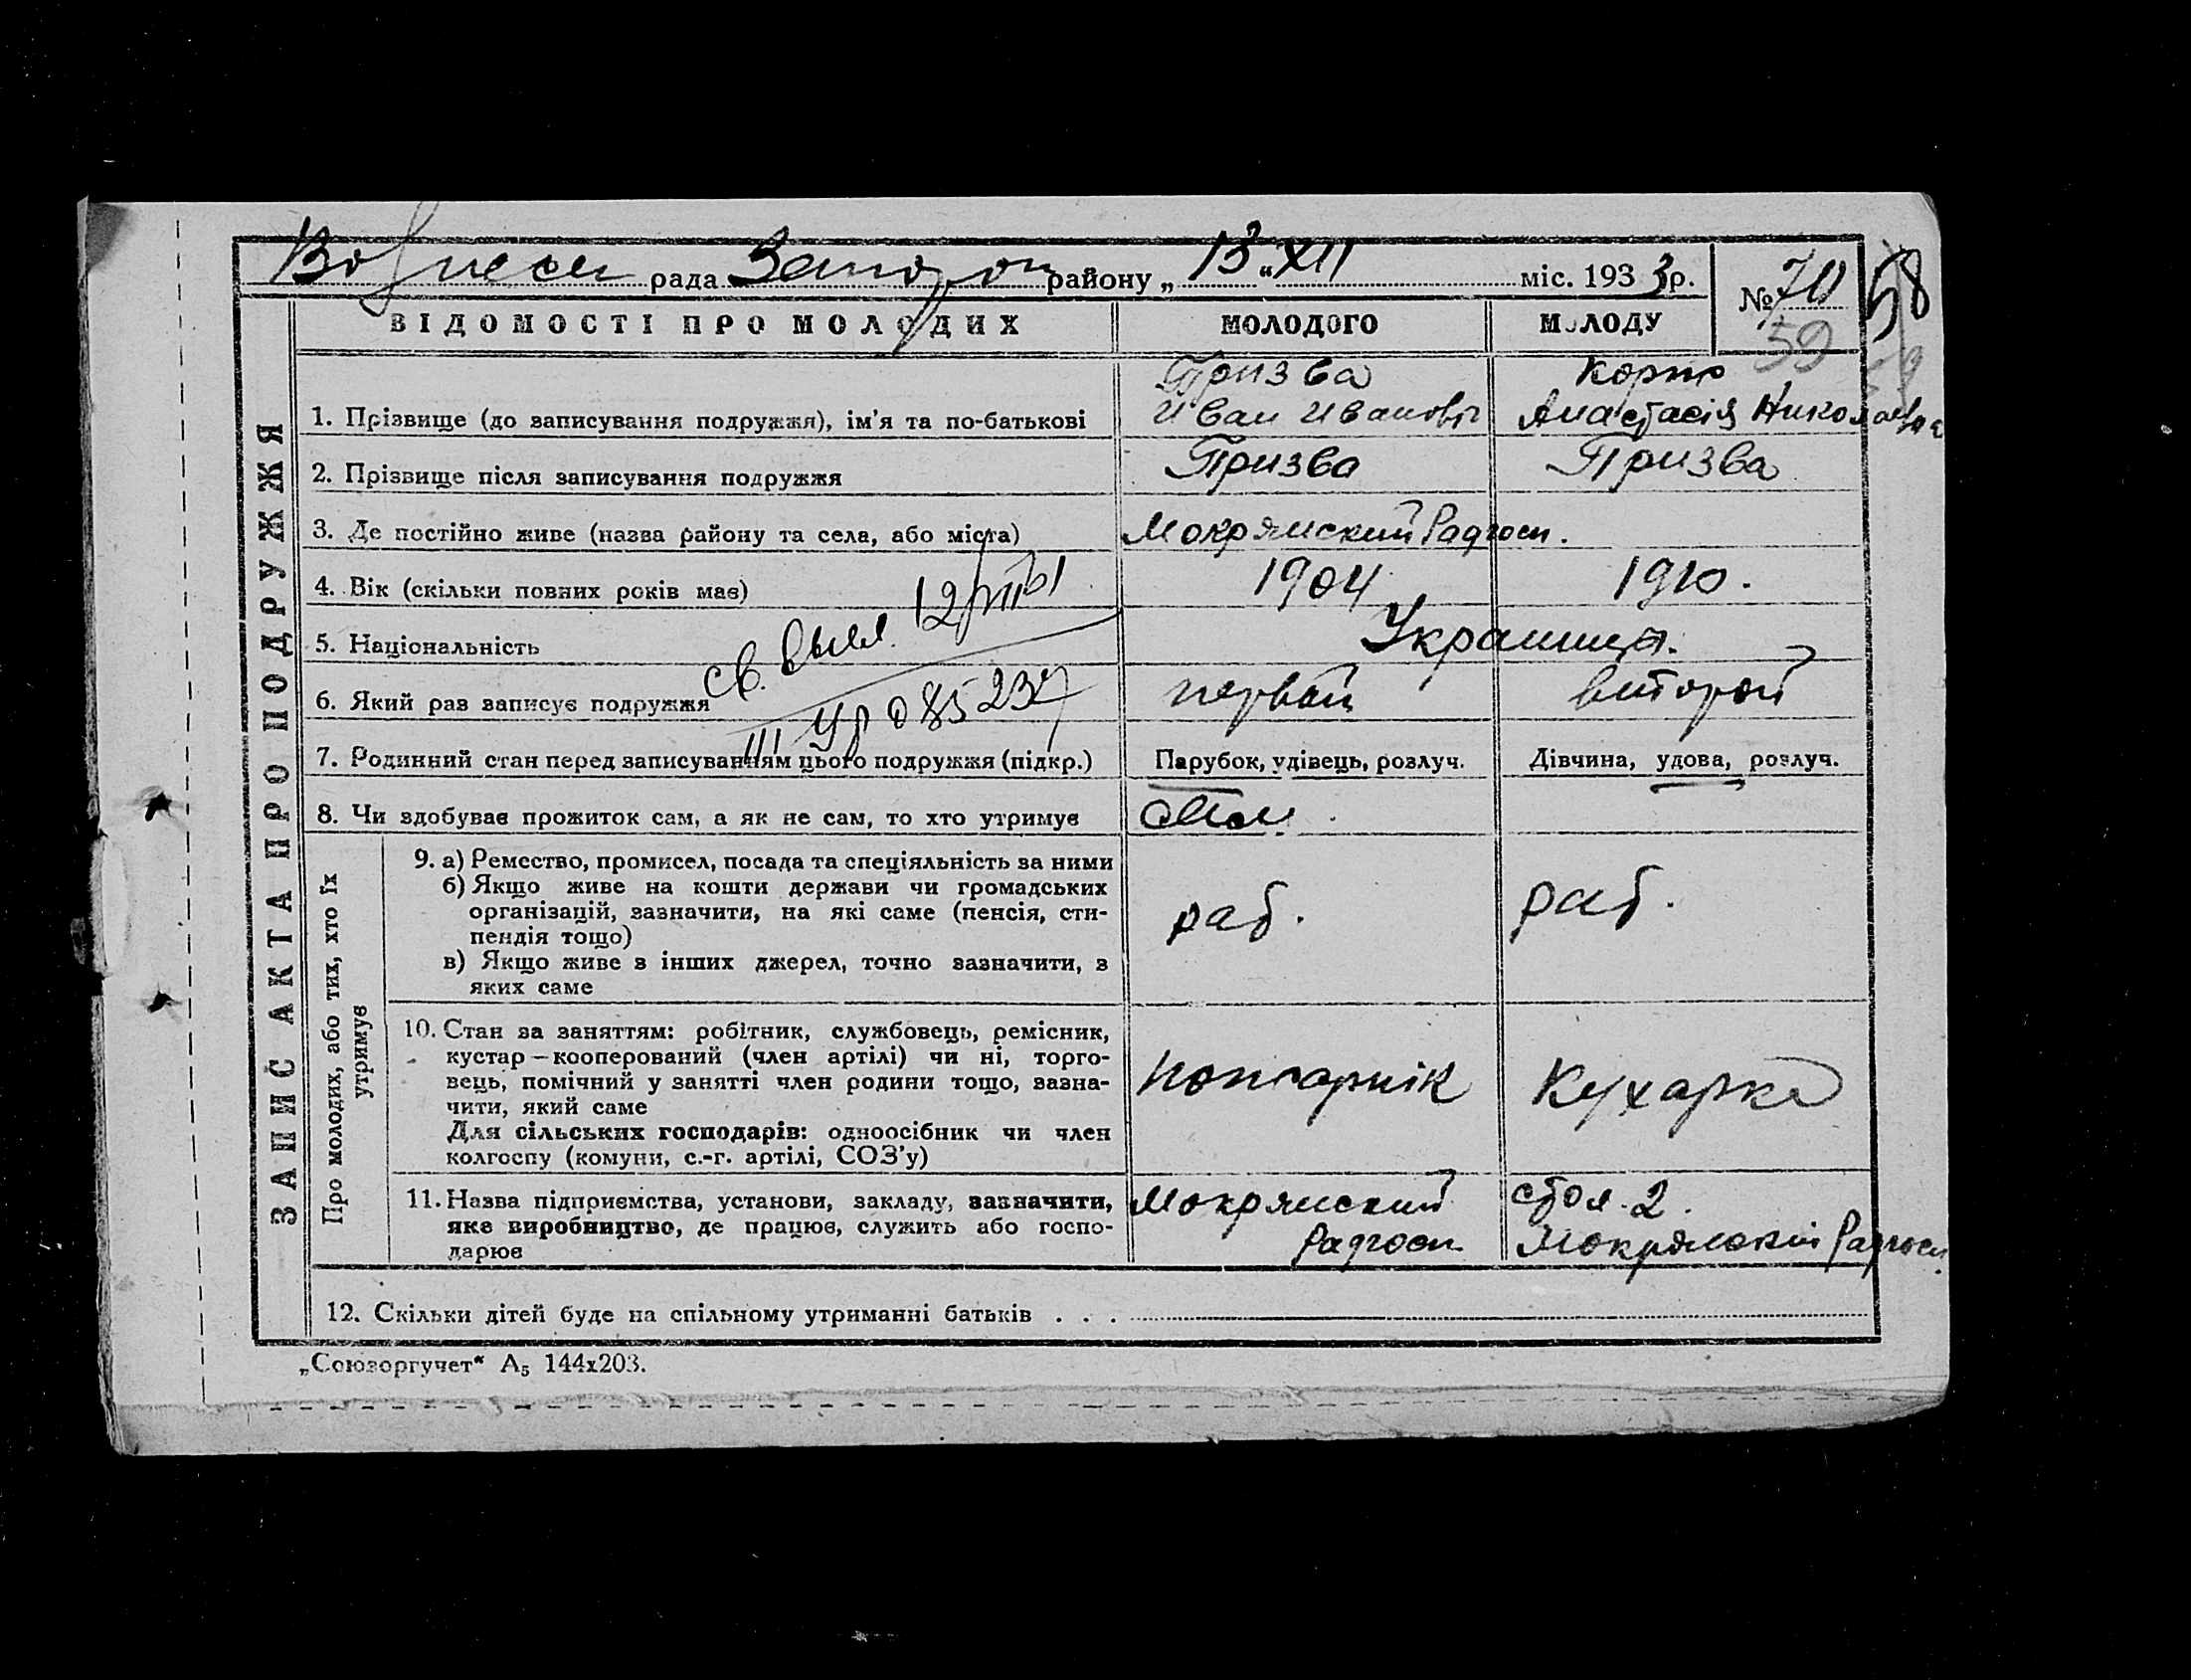 Вознесен рада Запорож району „ 13 “ XII міс. 1933 р.
№ 70
58
59
ВІДОМОСТІ ПРО МОЛОДИХ МОЛОДОГО МОЛОДУ
ЗАПИС АКТА ПРО ПОДРУЖЖЯ
Призва Корпо
1. Прізвище (до записування подружжя), ім'я та по-батькові Иван Иванович Анастасія Николаевна
2. Прізвище після записування подружжя Призва Призва
3. Де постійно живе (назва району та села, або міста) Мокрянский Радгосп.
4. Вік (скільки повних років має) 1904 1910.
5. Національність Украинцы.
св. выд. 12/VII 61
III УР 085237
6. Який раз записує подружжя первый второй
7. Родинний стан перед записуванням цього подружжя (підкр.) Парубок, удівець, розлуч. Дівчина, удова, розлуч.
8. Чи здобуває прожиток сам, а як не сам, то хто утримує сам.
Про молодих, або тих, хто їх утримує
9. а) Ремество, промисел, посада та спеціяльність за ними
б) Якщо живе на кошти держави чи громадських
організацій, зазначити, на які саме (пенсія, сти-
пендія тощо)
раб. раб.
в) Якщо живе з інших джерел, точно зазначити, з
яких саме
10. Стан за заняттям: робітник, службовець, ремісник,
кустар—кооперований (член артілі) чи ні, торго-
вець, помічний у занятті член родини тощо, зазна-
чити, який саме
Для сільських господарів: одноосібник чи член
колгоспу (комуни, с.-г. артілі, СОЗ'у)
Кухарка
11. Назва підприємства, установи, закладу, зазначити, Мокрянский стол. 2.
яке виробництво, де працює, служить або госпо- Радгосп Мокрянский Радгосп.
дарює
12. Скільки дітей буде на спільному утриманні батьків . . .
„Союзоргучет“ А5 144х203.